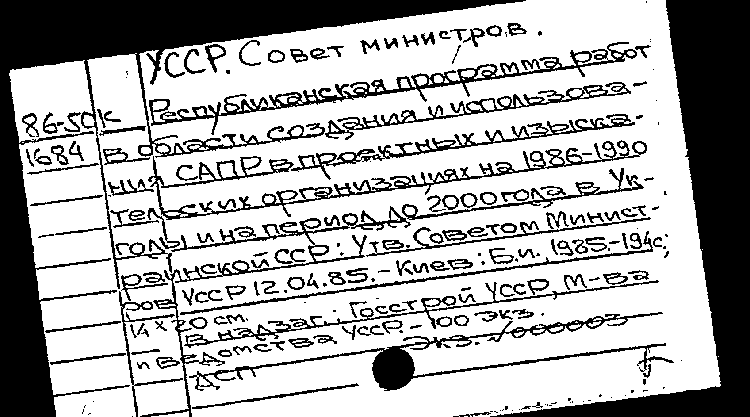 УССР. Совет министров.
86-50к Республиканская программа работ
1684 в области создания и использова-
ния САПР в проектных и изыска-
тельских организациях на 1986-1990
годы и на период до 2000 года в Ук-
раинской ССР: Утв. Советом Минист-
ров УССР 12.04.85. - Киев: Б.и., 1985-194с;
14 х 20 см.
В надзаг.: Госстрой УССР, М-ва
и ведомства УССР. - 100 экз.
Экз. √000003
ДСП